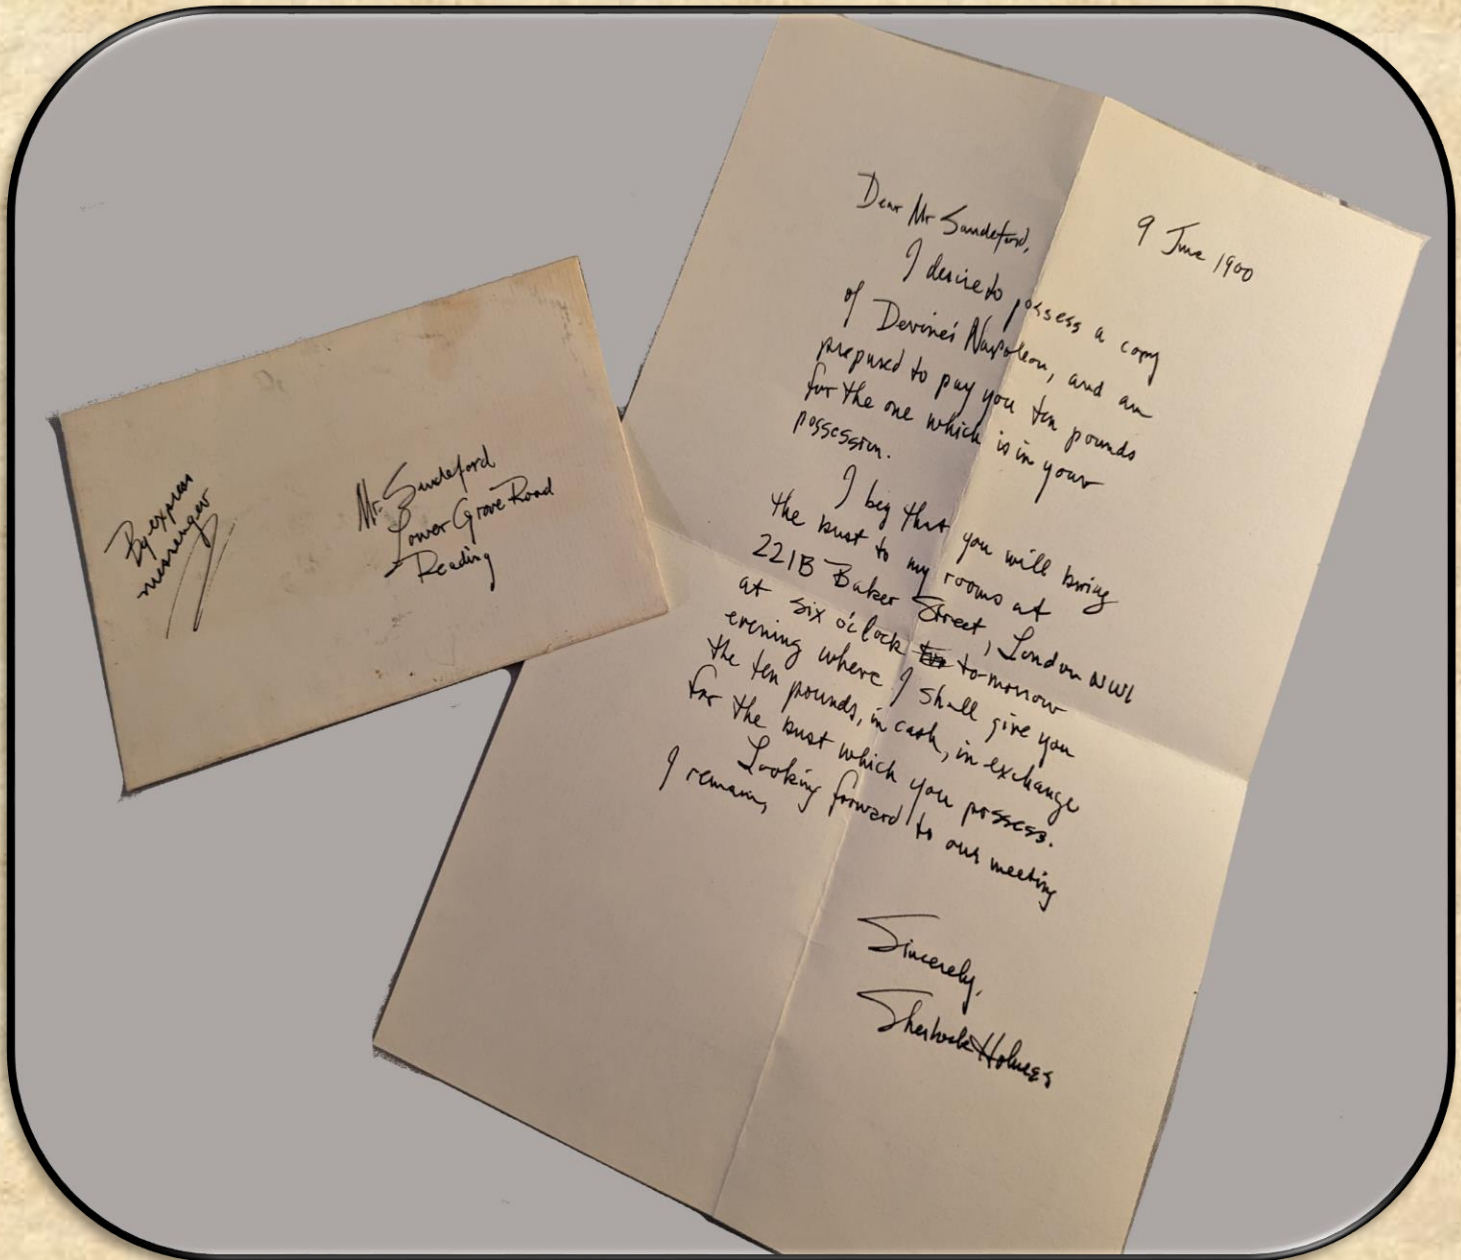 By express
messenger
Mr. Sandeford
Lower Grove Road
Reading
9 June 1900
Dear Mr Sandeford,
I desire to possess a copy
of Devine's Napoleon, and am
prepared to pay you ten pounds
for the one which is in your
possession.
I beg that you will bring
the bust to my rooms at
221B Baker Street, London NW1
at six o'clock tomorrow
evening where I shall give you
the ten pounds, in cash, in exchange
for the bust which you possess.
Looking forward to our meeting
I remain,
Sincerely,
Sherlock Holmes